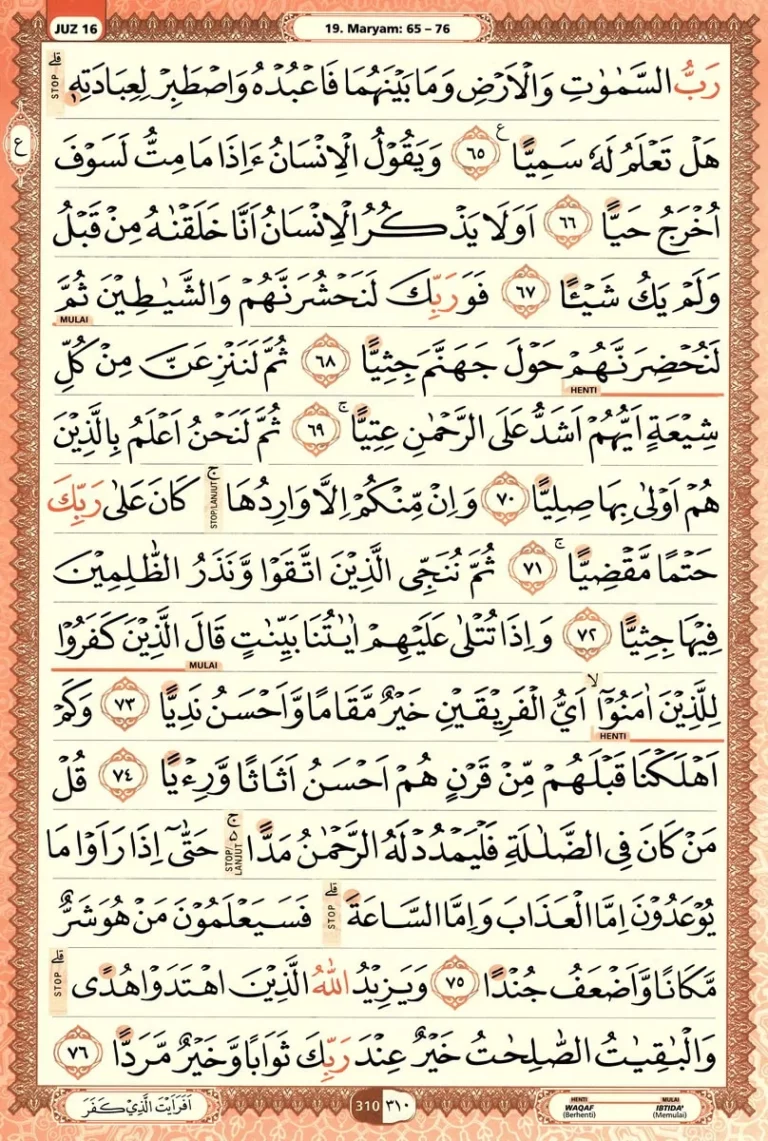 JUZ 16
19. Maryam: 65 – 76
رَبُّ السَّمٰوٰتِ وَالْاَرْضِ وَمَا بَيْنَهُمَا فَاعْبُدْهُ وَاصْطَبِرْ لِعِبَادَتِهٖۗ
STOP
ع
هَلْ تَعْلَمُ لَهٗ سَمِيًّا ࣖ ٦٥ وَيَقُوْلُ الْاِنْسَانُ ءَاِذَا مَا مِتُّ لَسَوْفَ
اُخْرَجُ حَيًّا ٦٦ اَوَلَا يَذْكُرُ الْاِنْسَانُ اَنَّا خَلَقْنٰهُ مِنْ قَبْلُ
وَلَمْ يَكُ شَيْـًٔا ٦٧ فَوَرَبِّكَ لَنَحْشُرَنَّهُمْ وَالشَّيٰطِيْنَ ثُمَّ
MULAI
لَنُحْضِرَنَّهُمْ حَوْلَ جَهَنَّمَ جِثِيًّا ٦٨ ثُمَّ لَنَنْزِعَنَّ مِنْ كُلِّ
HENTI
شِيْعَةٍ اَيُّهُمْ اَشَدُّ عَلَى الرَّحْمٰنِ عِتِيًّا ۚ ٦٩ ثُمَّ لَنَحْنُ اَعْلَمُ بِالَّذِيْنَ
هُمْ اَوْلٰى بِهَا صِلِيًّا ٧٠ وَاِنْ مِّنْكُمْ اِلَّا وَارِدُهَا ۚ كَانَ عَلٰى رَبِّكَ
STOP/LANJUT
حَتْمًا مَّقْضِيًّا ۚ ٧١ ثُمَّ نُنَجِّى الَّذِيْنَ اتَّقَوْا وَّنَذَرُ الظّٰلِمِيْنَ
فِيْهَا جِثِيًّا ٧٢ وَاِذَا تُتْلٰى عَلَيْهِمْ اٰيٰتُنَا بَيِّنٰتٍ قَالَ الَّذِيْنَ كَفَرُوْا
MULAI
لِلَّذِيْنَ اٰمَنُوْٓا ۙ اَيُّ الْفَرِيْقَيْنِ خَيْرٌ مَّقَامًا وَّاَحْسَنُ نَدِيًّا ٧٣ وَكَمْ
HENTI
اَهْلَكْنَا قَبْلَهُمْ مِّنْ قَرْنٍ هُمْ اَحْسَنُ اَثَاثًا وَّرِءْيًا ٧٤ قُلْ
مَنْ كَانَ فِى الضَّلٰلَةِ فَلْيَمْدُدْ لَهُ الرَّحْمٰنُ مَدًّا ۚ حَتّٰىٓ اِذَا رَاَوْا مَا
STOP/LANJUT
يُوْعَدُوْنَ اِمَّا الْعَذَابَ وَاِمَّا السَّاعَةَ ۗ فَسَيَعْلَمُوْنَ مَنْ هُوَ شَرٌّ
STOP
مَّكَانًا وَّاَضْعَفُ جُنْدًا ٧٥ وَيَزِيْدُ اللّٰهُ الَّذِيْنَ اهْتَدَوْا هُدًى ۗ
STOP
وَالْبٰقِيٰتُ الصّٰلِحٰتُ خَيْرٌ عِنْدَ رَبِّكَ ثَوَابًا وَّخَيْرٌ مَّرَدًّا ٧٦
اَفَرَاَيْتَ الَّذِيْ كَفَرَ
310 ٣١٠
HENTI WAQAF (Berhenti)
MULAI IBTIDA' (Memulai)